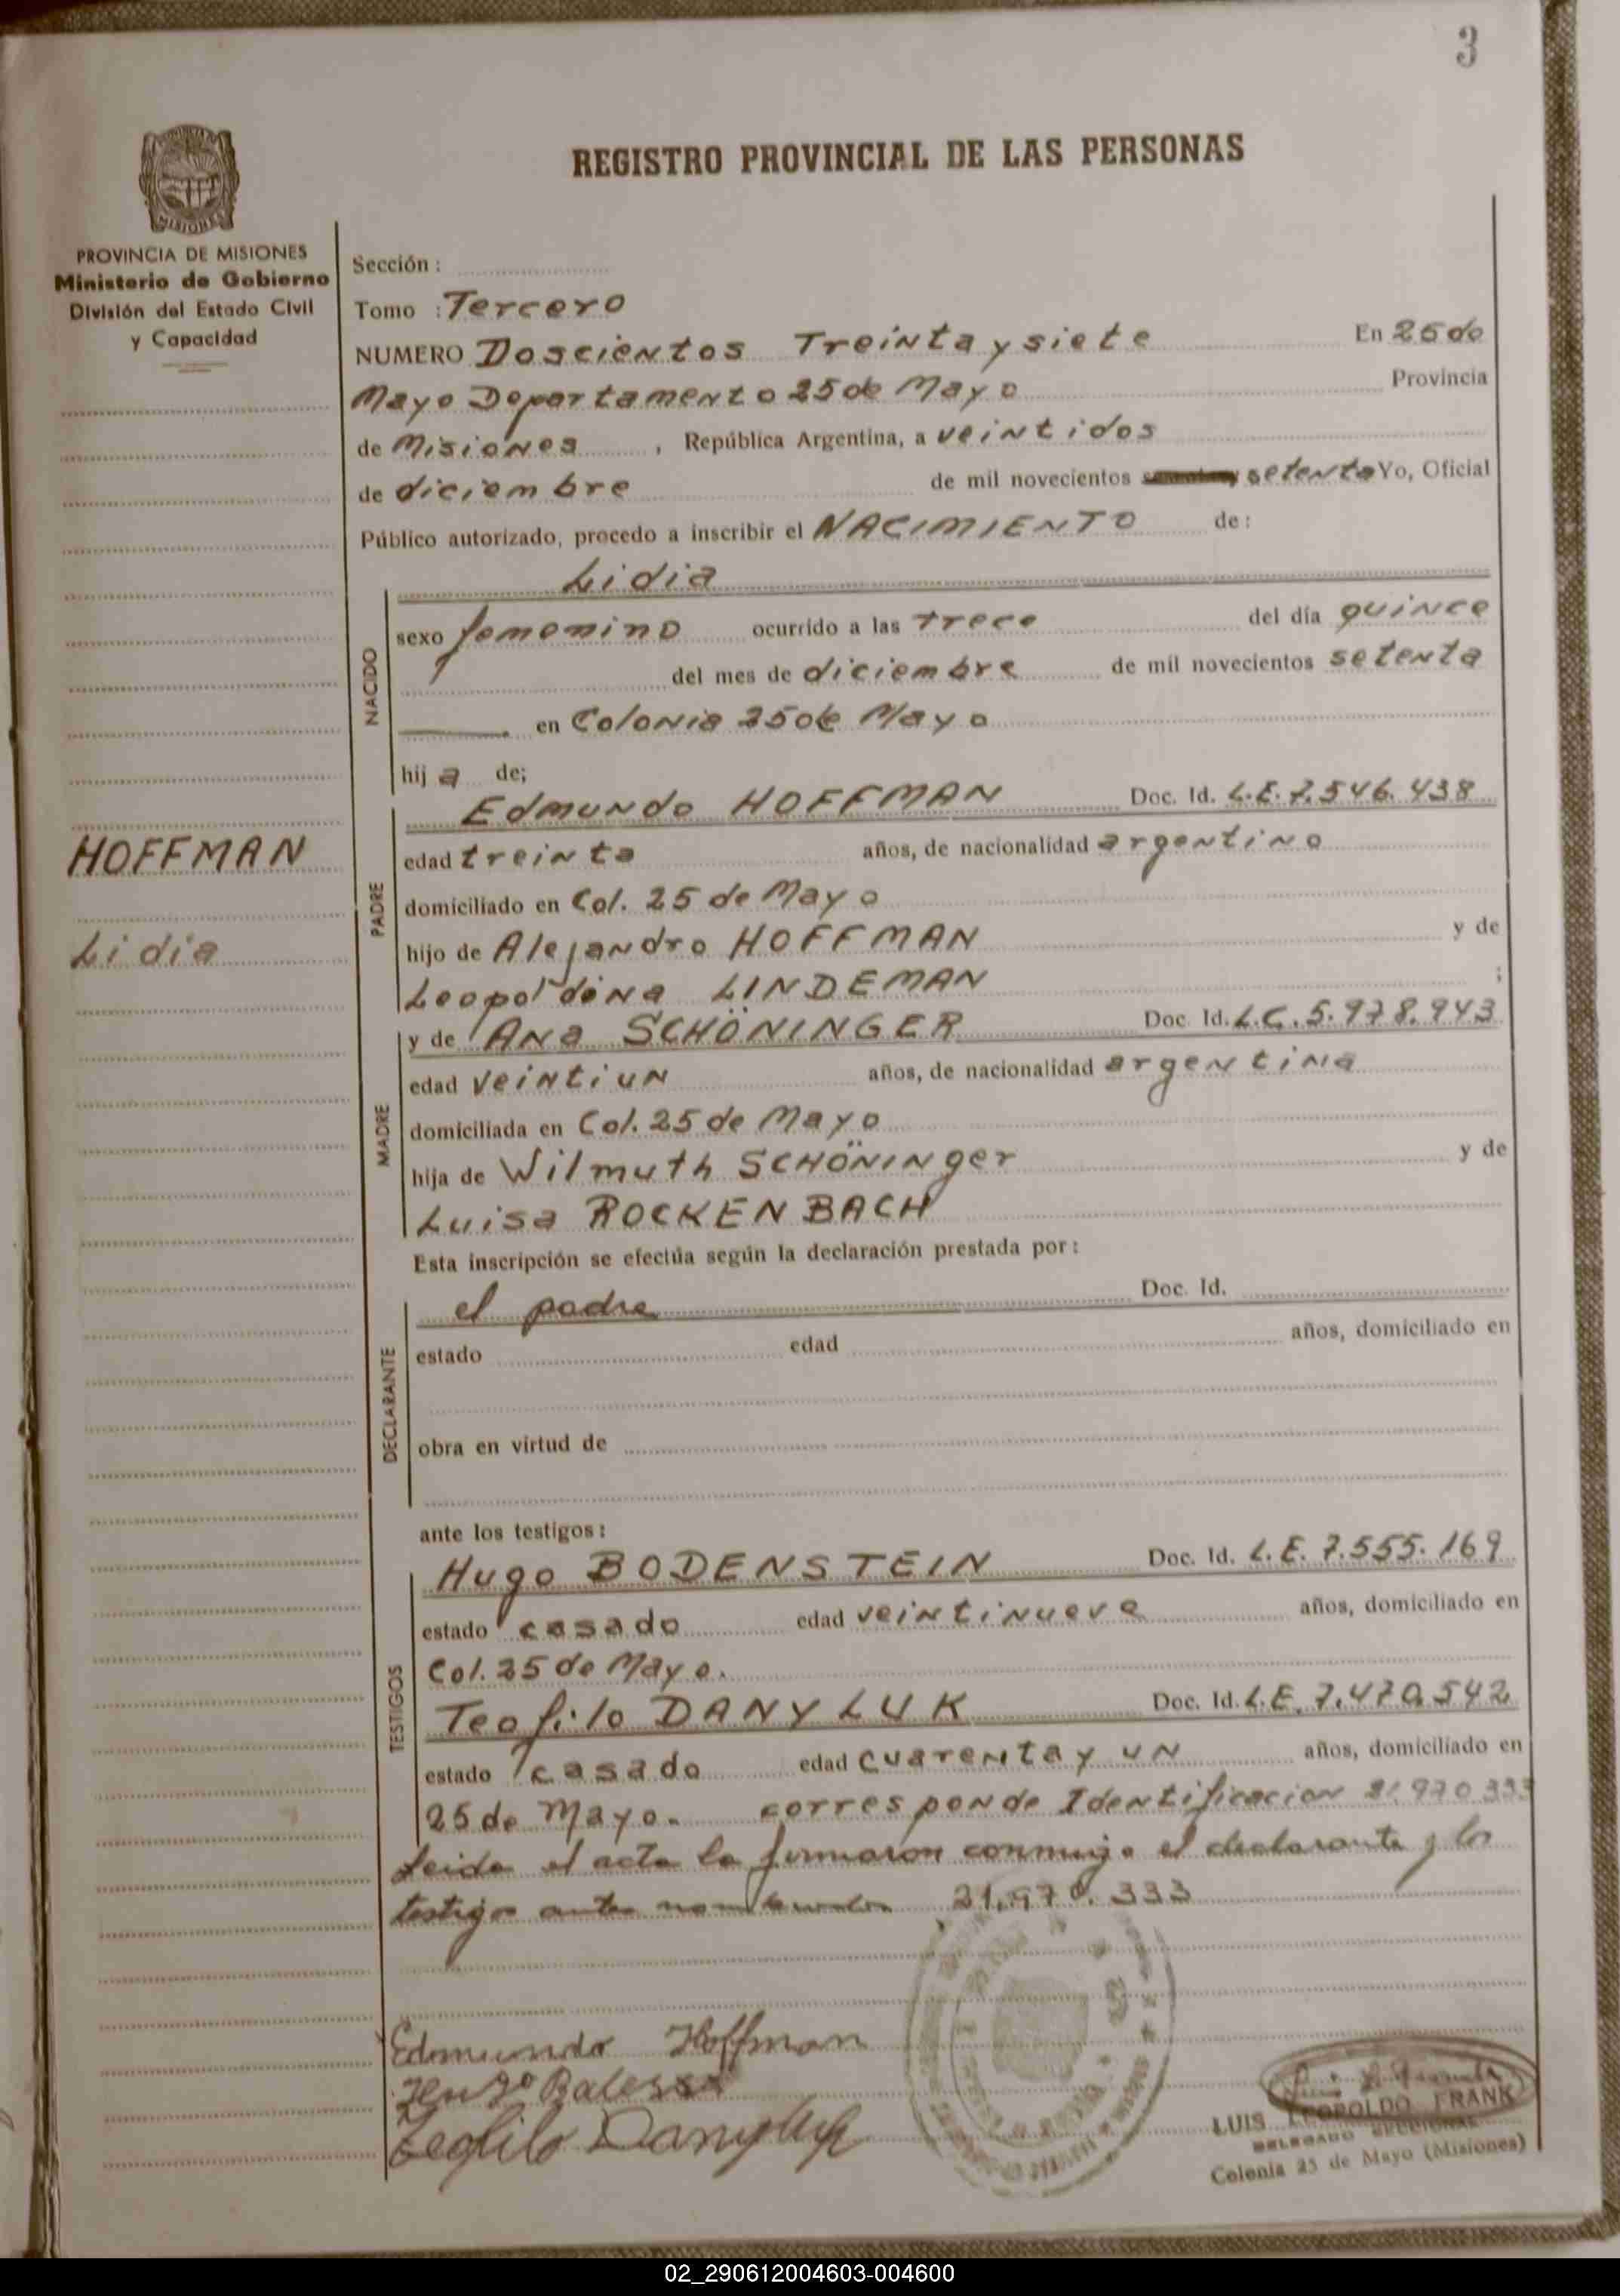 3
REGISTRO PROVINCIAL DE LAS PERSONAS
PROVINCIA DE MISIONES
Ministerio de Gobierno
División del Estado Civil
y Capacidad
HOFFMAN
Lidia
Sección :
Tomo : Tercero
NUMERO Doscientos Treinta y siete En 25 de
Mayo Departamento 25 de Mayo Provincia
de Misiones , República Argentina, a veintidos
de diciembre de mil novecientos setenta Yo, Oficial
Público autorizado, procedo a inscribir el NACIMIENTO de:
Lidia
NACIDO
sexo femenino ocurrido a las trece del día quince
del mes de diciembre de mil novecientos setenta
en Colonia 25 de Mayo
hij a de;
PADRE
Edmundo HOFFMAN Doc. Id. L.E. 7.546.438
edad treinta años, de nacionalidad argentino
domiciliado en Col. 25 de Mayo
hijo de Alejandro HOFFMAN y de
Leopoldina LINDEMAN ;
MADRE
y de Ana SCHÖNINGER Doc. Id. L.C. 5.978.943
edad veintiun años, de nacionalidad argentina
domiciliada en Col. 25 de Mayo
hija de Wilmuth SCHÖNINger y de
Luisa ROCKENBACH
Esta inscripción se efectúa según la declaración prestada por:
DECLARANTE
el padre Doc. Id.
estado edad años, domiciliado en
obra en virtud de
ante los testigos:
TESTIGOS
Hugo BODENSTEIN Doc. Id. L.E. 7.555.169
estado casado edad veintinueve años, domiciliado en
Col. 25 de Mayo.
Teofilo DANYLUK Doc. Id. L.E. 7.470.542
estado casado edad cuarenta y un años, domiciliado en
25 de Mayo. corresponde Identificacion 21.970.333
Leida el acta la firmaron conmigo el declarante y los
testigos antes nombrados 21.970.333
Edmundo Hoffman
Teofilo Danyluk
LUIS LEOPOLDO FRANK
DELEGADO SECCIONAL
Colonia 25 de Mayo (Misiones)
02_290612004603-004600